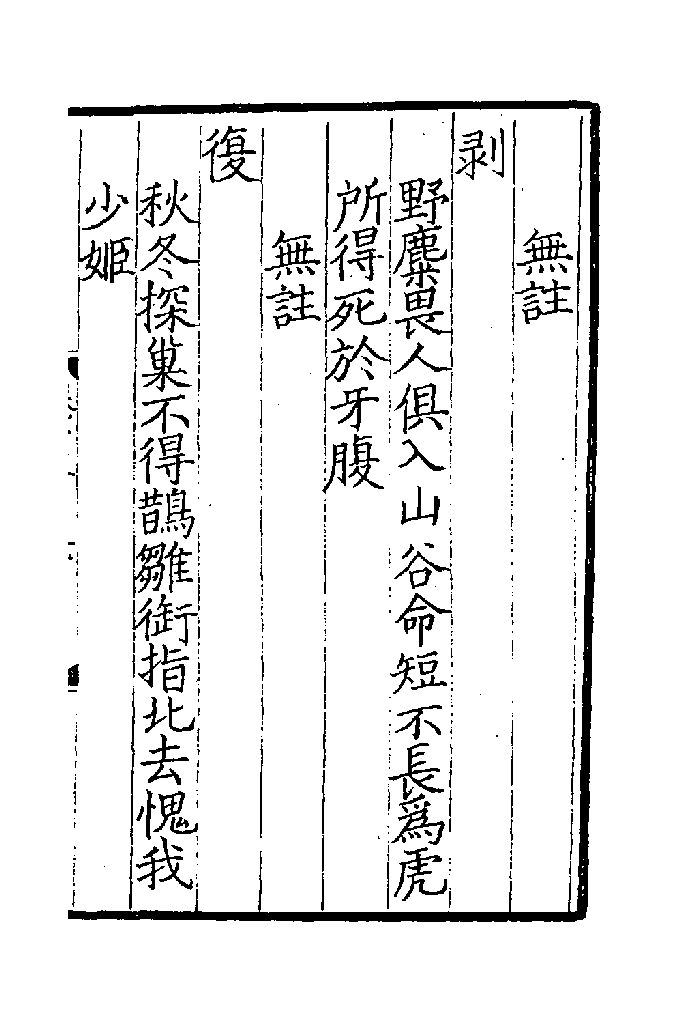 無註
剥
野麋畏人俱入山谷命短不長爲虎
所得死於牙腹
無註
復
秋冬探巢不得鵲雛銜指北去愧我
少姬